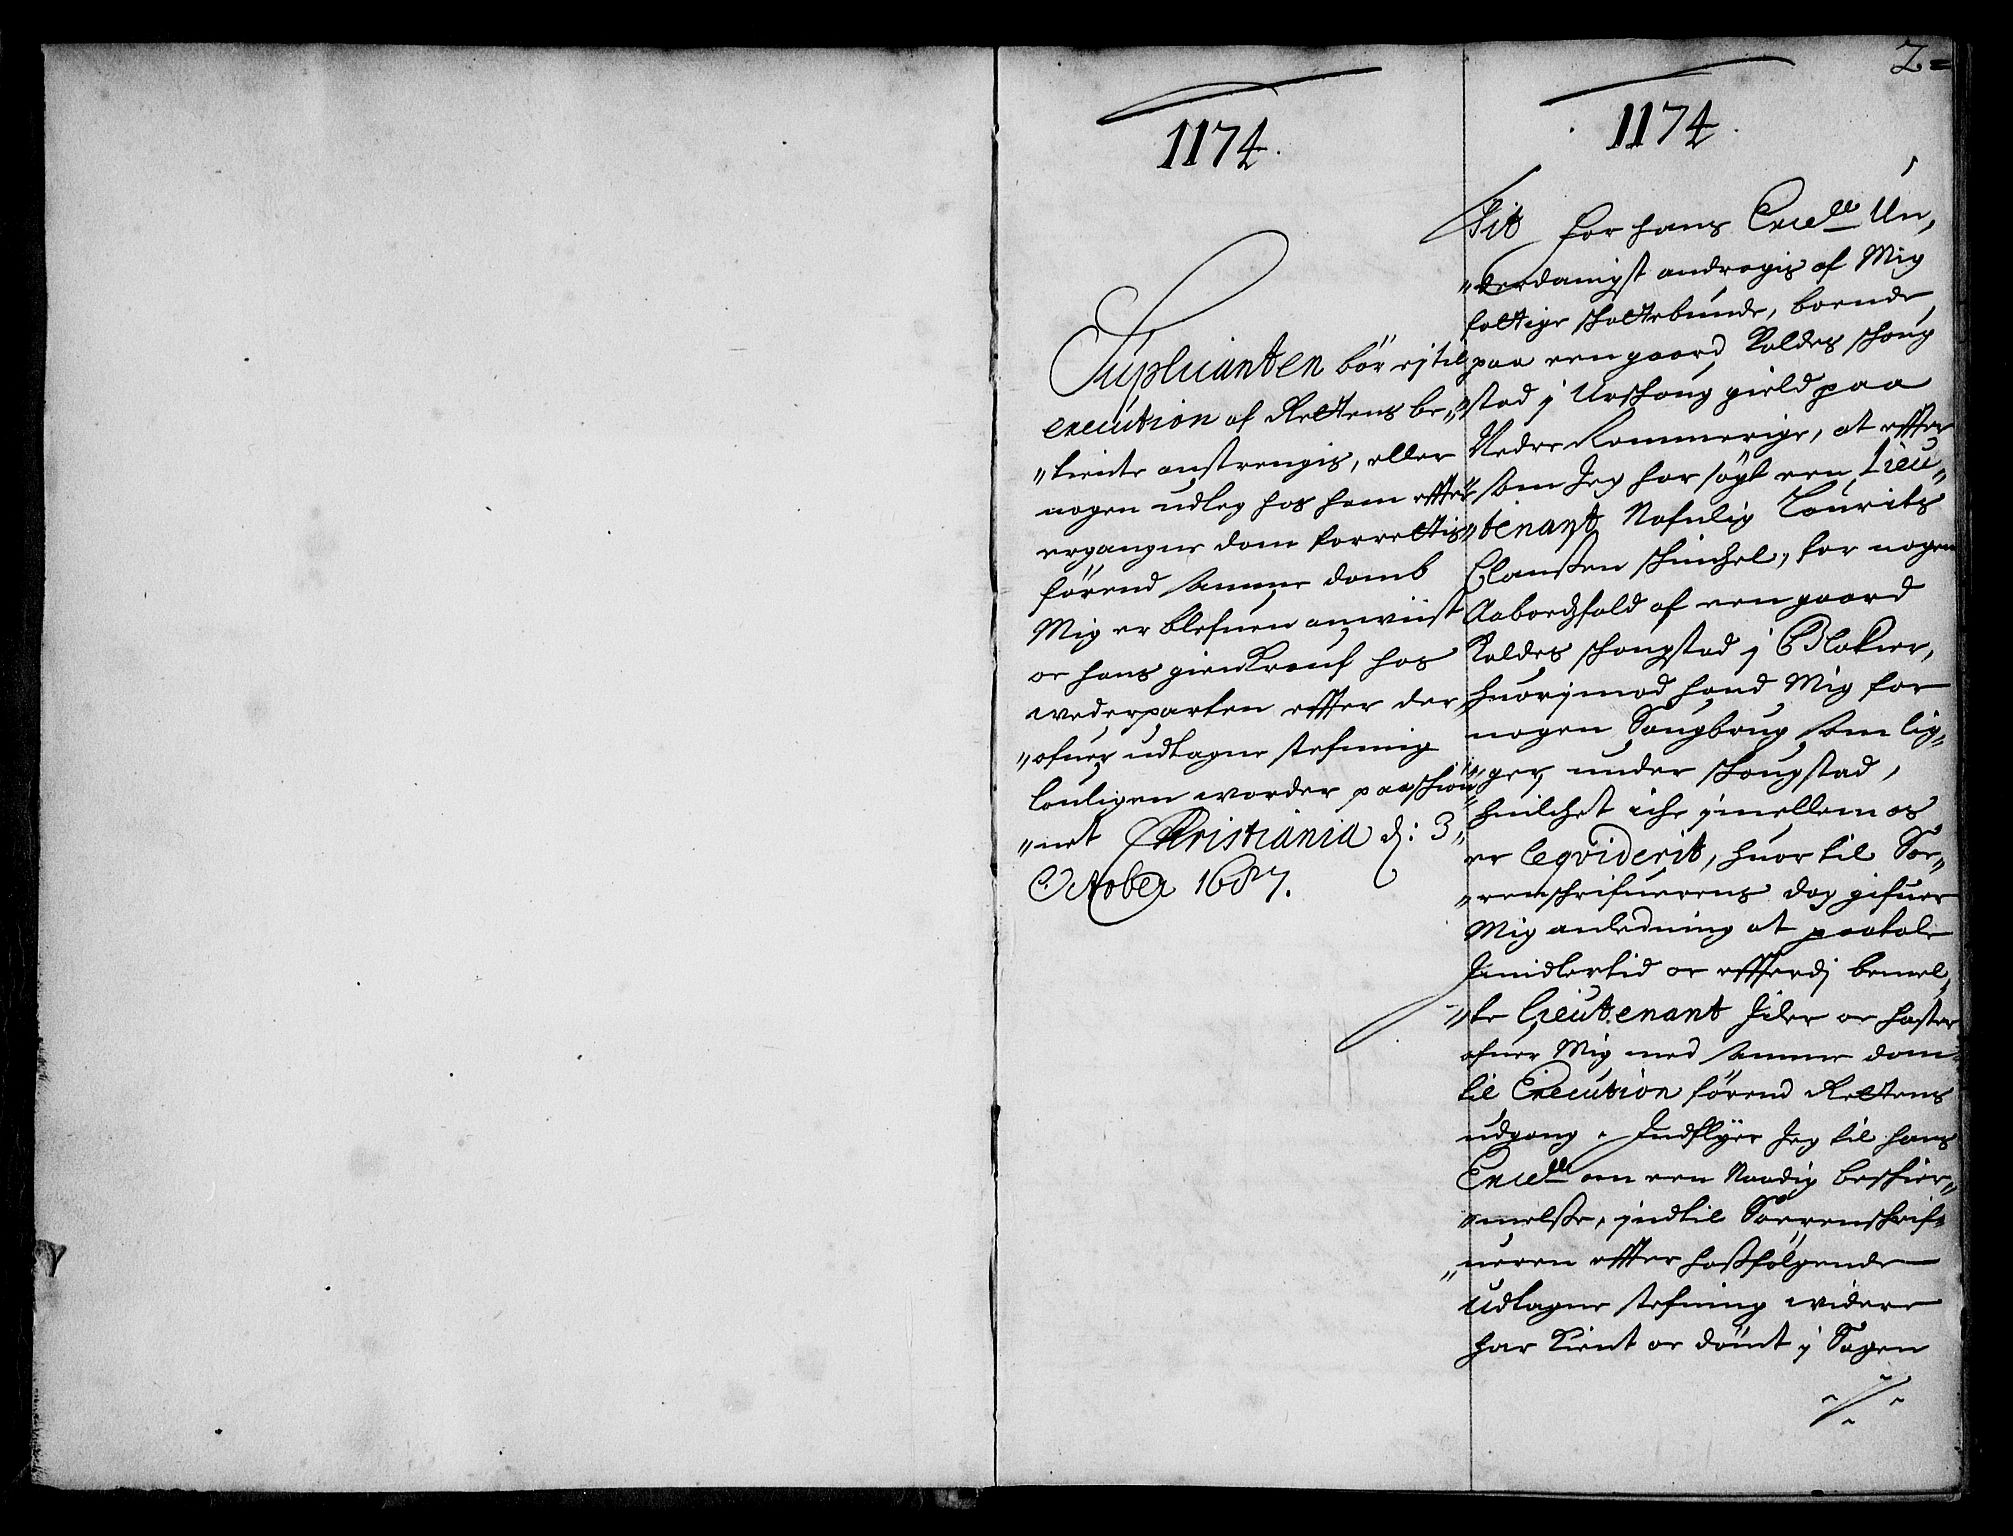 2
1174.
Supluianten bör ej til
execution af Rettens be-
tiente anstrengis, eller
nogen udleg hos ham effter
ergangne dom forrettis
förend samme domb
Mig er blefuen anwiist
oc hans gienkrauf hos
wederparten effter der
ofuer udtagne stefning
louligen worder paaschiön
net Christiania d: 3
October 1687.
1174.
Dit for hans Excell Un,
derdanigst andragis af Mig
fattige boende
paa een gaard Kaldes schoug
stad j Urschoug gield paa
Nedre Rommerige, at effter
som Jeg har søgt een Lieu
tenant Nafnlig Lourits
Claussen for nogen
Aabordsfald af een gaard
Kaldes schougstad j Blakier,
huorjmod hand Mig for
nogen Saugbrug som lig,
ger under schougstad,
huilchet iche jmellem os
er leqviderit, huor til Sor
renschrifuerens dag gifuer
Mig anledning at paatale
Jmidlertid oc effterdj bemel,
te Lieutenant Jiler oc haster
ofuer Mig med samme dom
til Execution förend Rettens
udgang. Indflyer Jeg til hans
Excell om een Naadig beschier
melsse, jndtil Sorrenschrif
ueren effter hossfølgende
udtagne stefning widere
har Kient oc dömt j Sagen